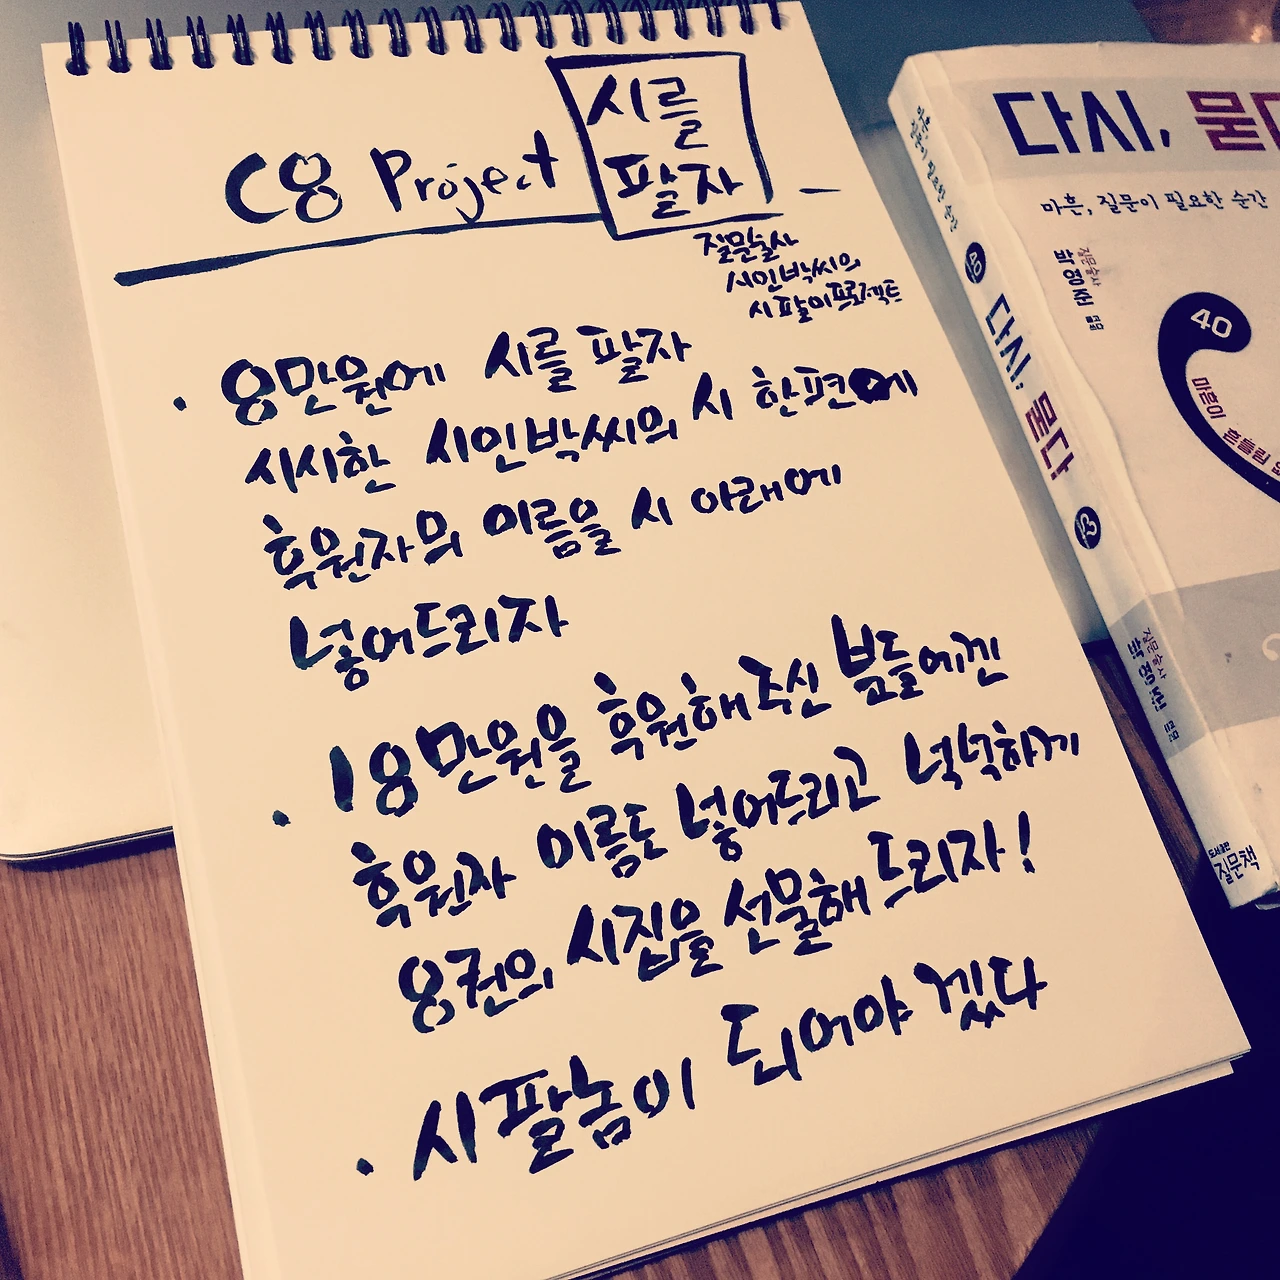 C8 Project
시를
팔자
질문술사
시인박씨의
시팔이프로젝트
· 8만원에 시를 팔자
시시한 시인박씨의 시 한편에
후원자의 이름을 시 아래에
넣어드리자
· 18만원을 후원해주신 분들에겐
후원자 이름도 넣어드리고 넉넉하게
8권의 시집을 선물해드리자!
· 시팔놈이 되어야겠다
다시, 묻다
마흔, 질문이 필요한 순간
질문술사
박영준
40
마흔이 흔들림
마흔, 질문이 필요한 순간
40
다시, 묻다
질문술사
박영준
도서출판
질문책